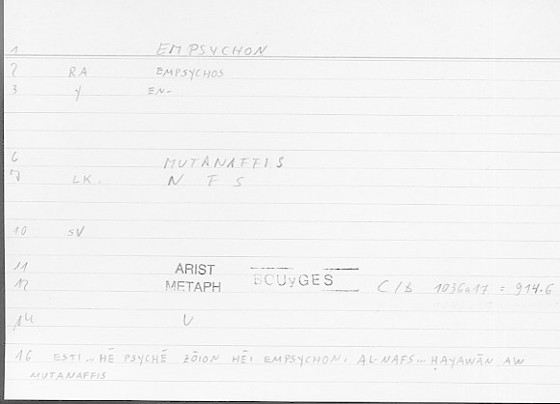 1 EMPSYCHON
2 RA EMPSYCHOS
3 Y EN-
6 MUTANAFFIS
7 LK. N F S
10 SV
11 ARIST
12 METAPH BOUyGES C/B 1036a17 = 914.6
14 U
16 ESTI... HĒ PSYCHĒ ZŌION HĒI EMPSYCHON. AL-NAFS... ḤAYAWĀN AW
MUTANAFFIS